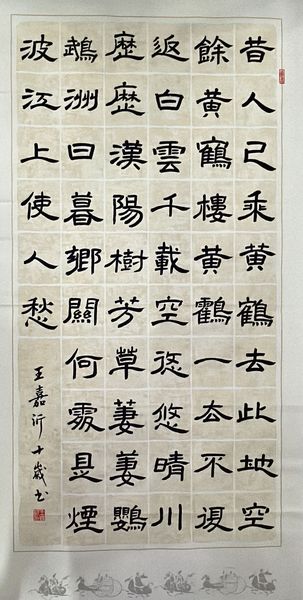 昔人已乘黄鶴去此地空
餘黄鶴樓黄鶴一去不復
返白雲千載空悠悠晴川
歷歷漢陽樹芳草萋萋鸚
鵡洲日暮鄉關何處是煙
波江上使人愁
王嘉沂十歲书